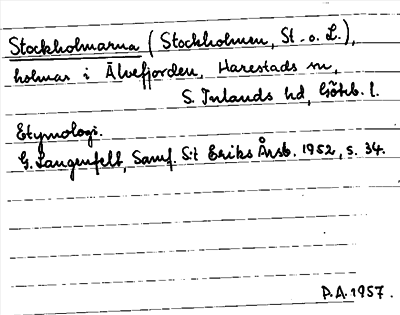 Stockholmarna (Stockholmen, St. o. L.),
holmar i Älvefjorden, Harestads sn,
S. Inlands hd, Göteb. l.
Etymologi.
G. Langenfelt, Samf. S:t Eriks Årsb. 1952, s. 34.
P.A. 1957.